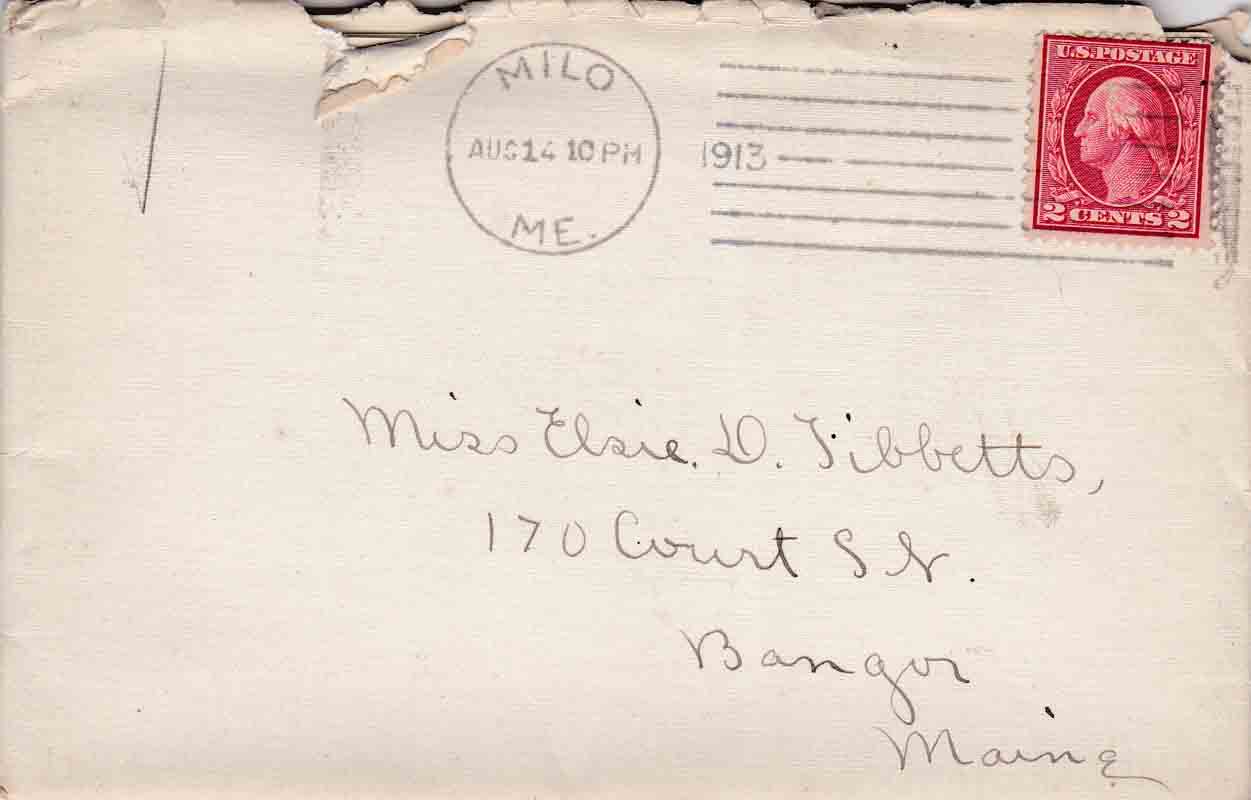 MILO
AUG 14 10 PM 1913
ME.
U.S. POSTAGE
2 CENTS 2
Miss Elsie. D. Tibbetts,
170 Court St.
Bangor
Maine